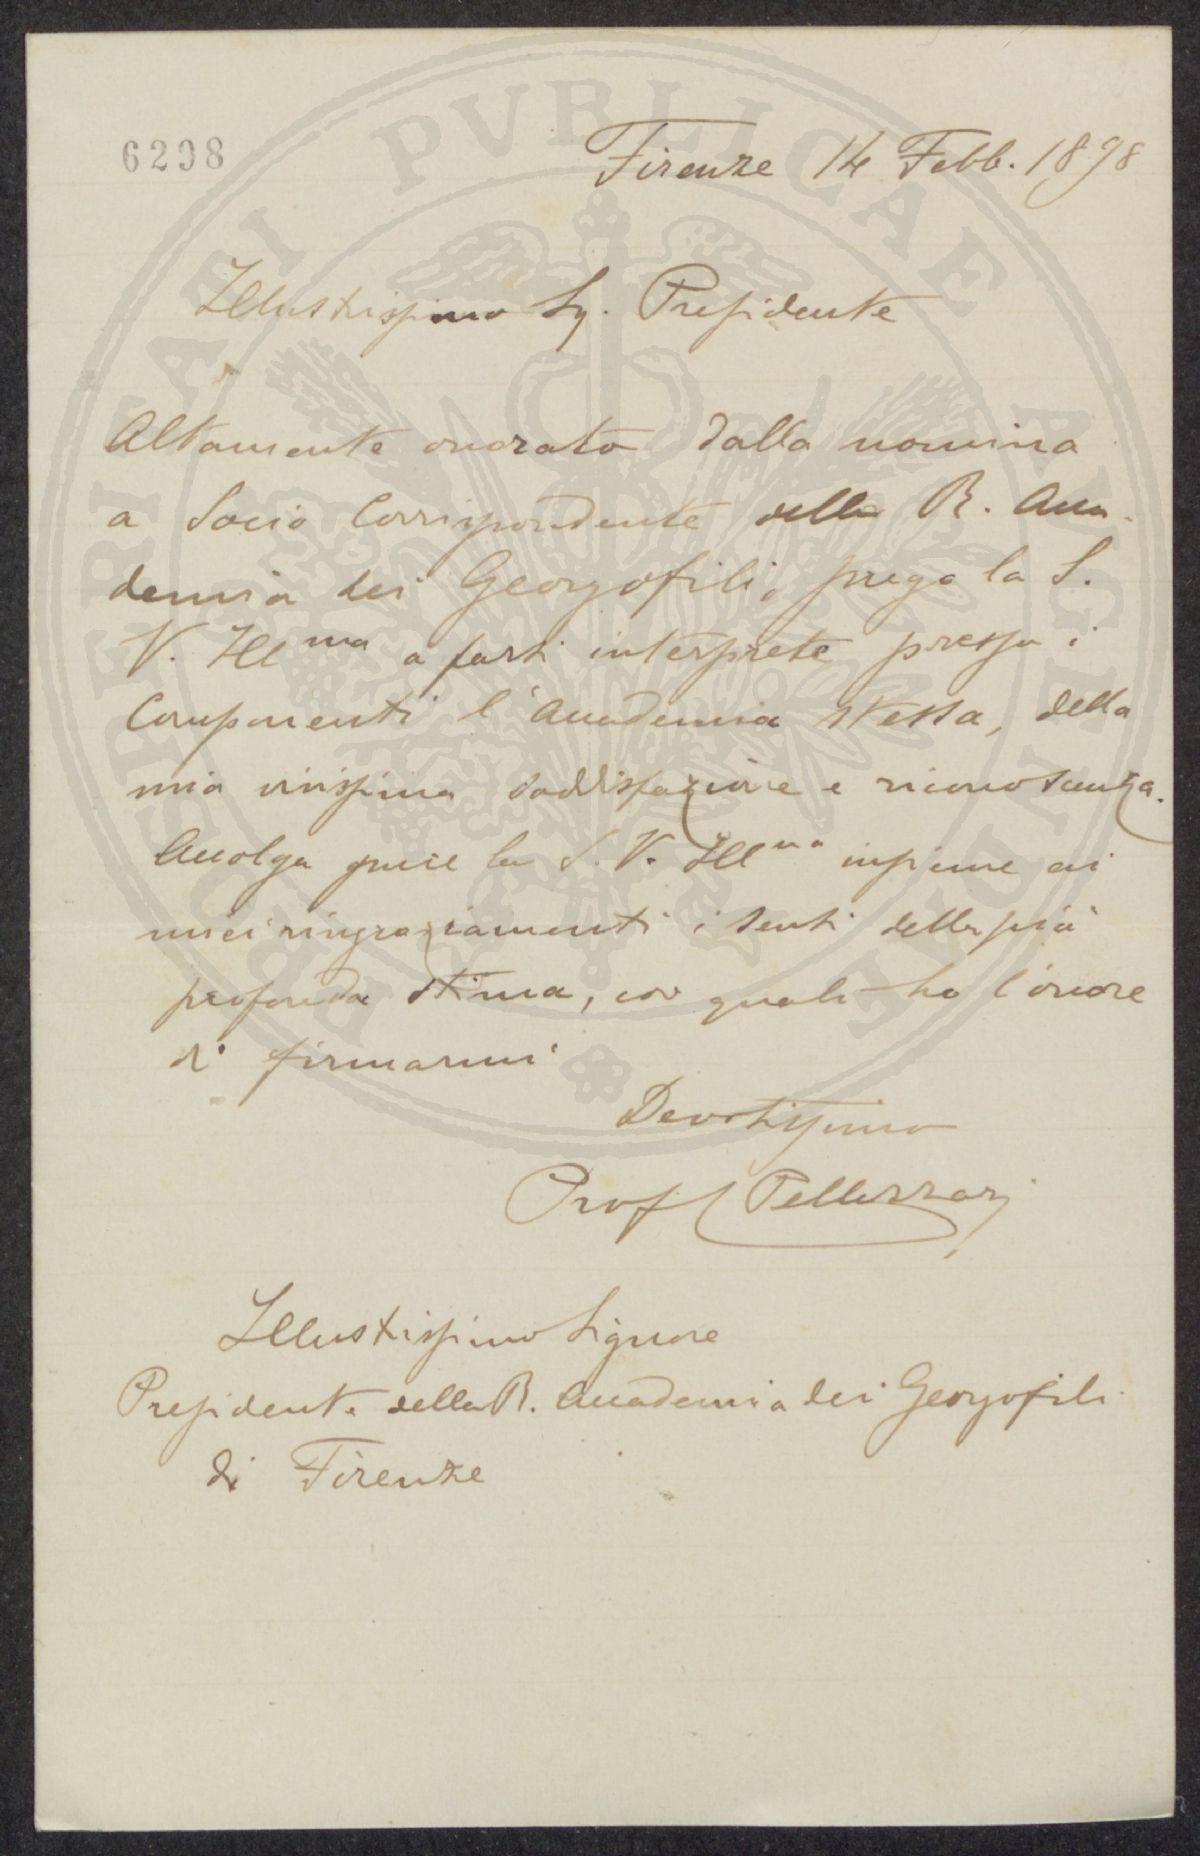 PROSPERITASI PVBLICAE AVGENDAE
6298
Firenze 14 Febb. 1898
Illustrissimo Sg. Presidente
Altamente onorato dalla nomina
a Socio Corrispondente della R. Acca-
demia dei Georgofili, prego la S.
V. Ill ma a farsi interprete presso i
Componenti l'Accademia stessa, della
mia vivissima soddisfazione e riconoscenza.
Accolga pure la S. V. Ill ma insieme ai
miei ringraziamenti i sensi della più
profonda stima, coi quali ho l'onore
di firmarmi
Devotissimo
Prof Pellizzari
Illustrissimo Signore
Presidente della R. Accademia dei Georgofili
di Firenze